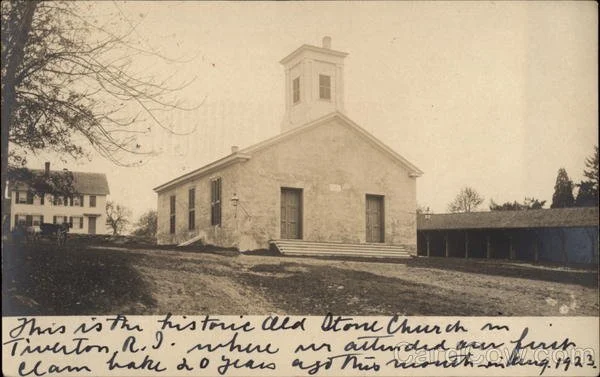 This is the historic Old Stone Church in
Tiverton, R.I. where we attended our first
Clam bake 20 years ago this month in Aug. 1923
CardCow.com